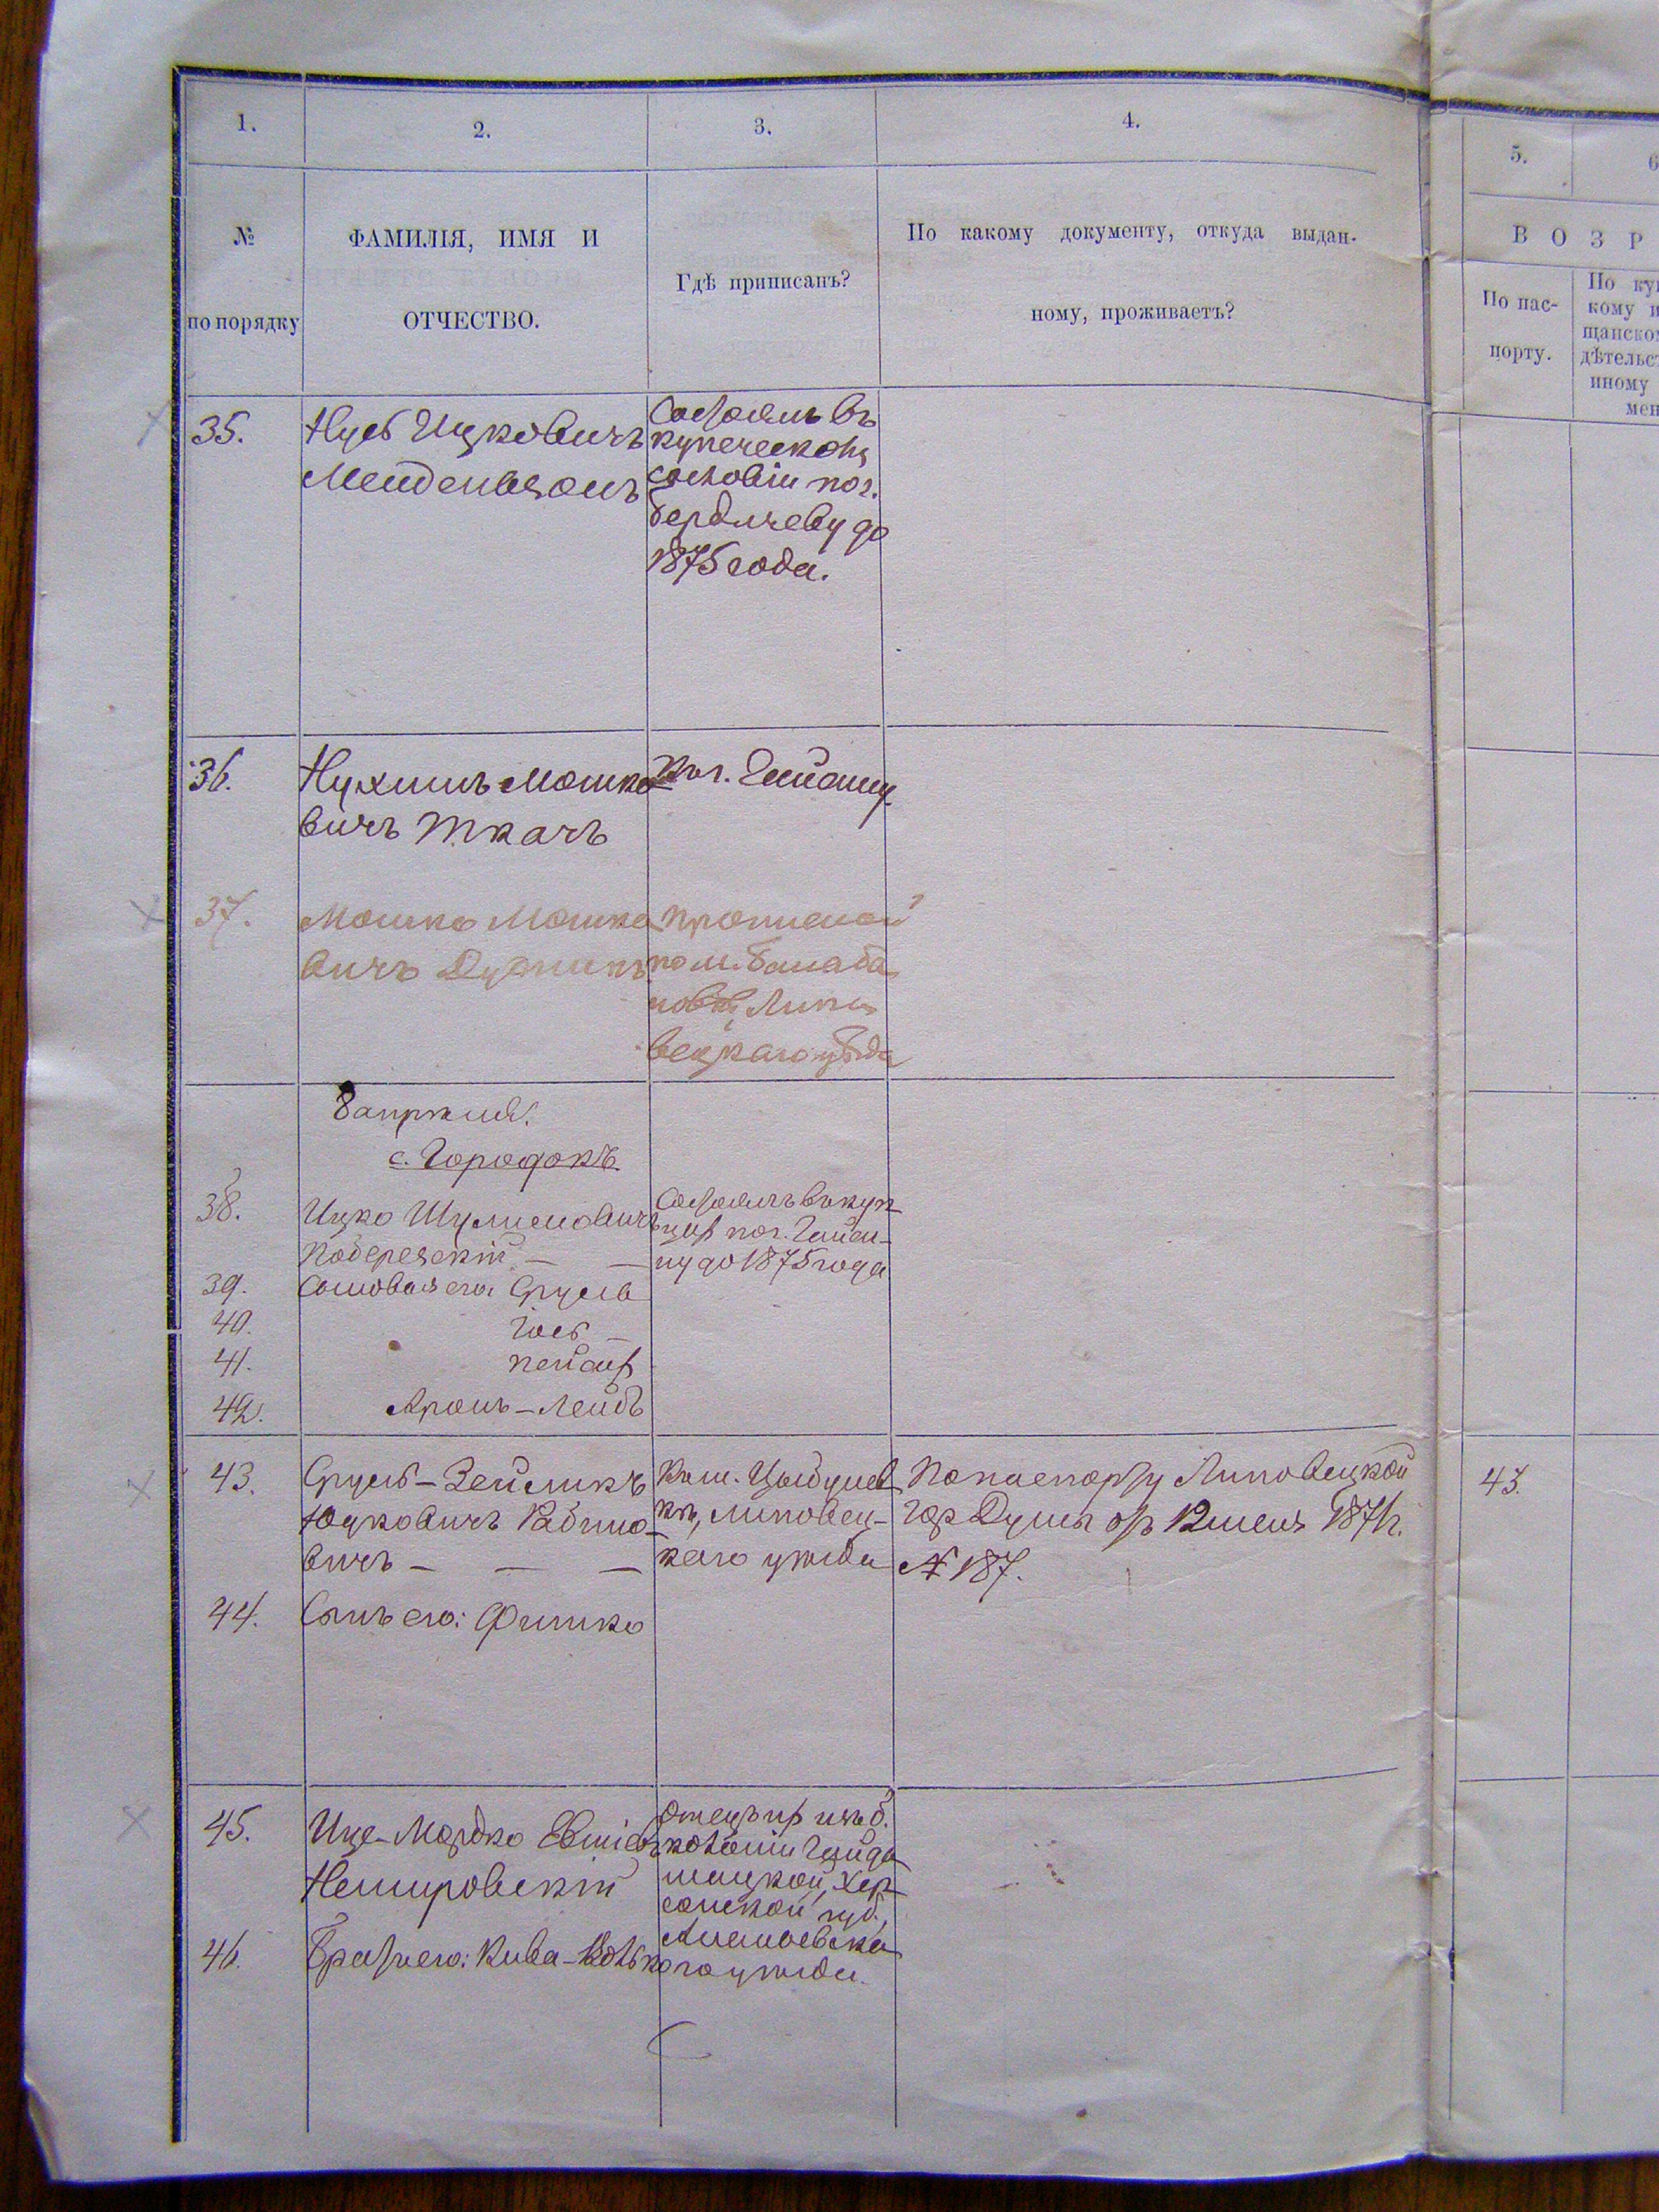 1.
2.
3.
4.
5.
6
№
по порядку
ФАМИЛІЯ, ИМЯ И
ОТЧЕСТВО.
Гдѣ приписанъ?
По какому документу, откуда выдан-
ному, проживаетъ?
ВОЗР
По пас-
порту.
По ку
кому и
щанско
дѣтельс
иному
мен
35.
Нусь Ицковичъ
Мендельзонъ
Состоялъ въ
купеческомъ
сословіи по г.
Бердичеву до
1875 года.
36.
Нухимъ Мошко
вичъ Ткачъ
По г. Гайсину
37.
Мошко Мошко
вичъ
по м. Балаба
новкѣ Липо
вецкаго уѣзда
с. Городокъ
38.
Ицко Шулимовичъ
Поберезскій — —
Состоялъ въ куп
цахъ по г. Гайси-
ну до 1875 года
39.
Сыновья его: Сруль
40.
Іось —
41.
Пейсах
42.
Аронъ-Лейбъ
43.
Сруль-Зейликъ
Юдковичъ Рабино-
вичъ — — —
По м. Цыбулев
кѣ, Липовец-
каго уѣзда
По паспорту Липовецкой
Гор Думы отъ 12 1871 г.
№ 187.
43.
44.
Сынъ его: Фишко
45.
Ице-Мордко
Немировскій
Отецъ их изъ б.
колоніи
Хер
сонской губ.,
Ананьевска
го уѣзда.
46.
Братъ его: Кива-Волько